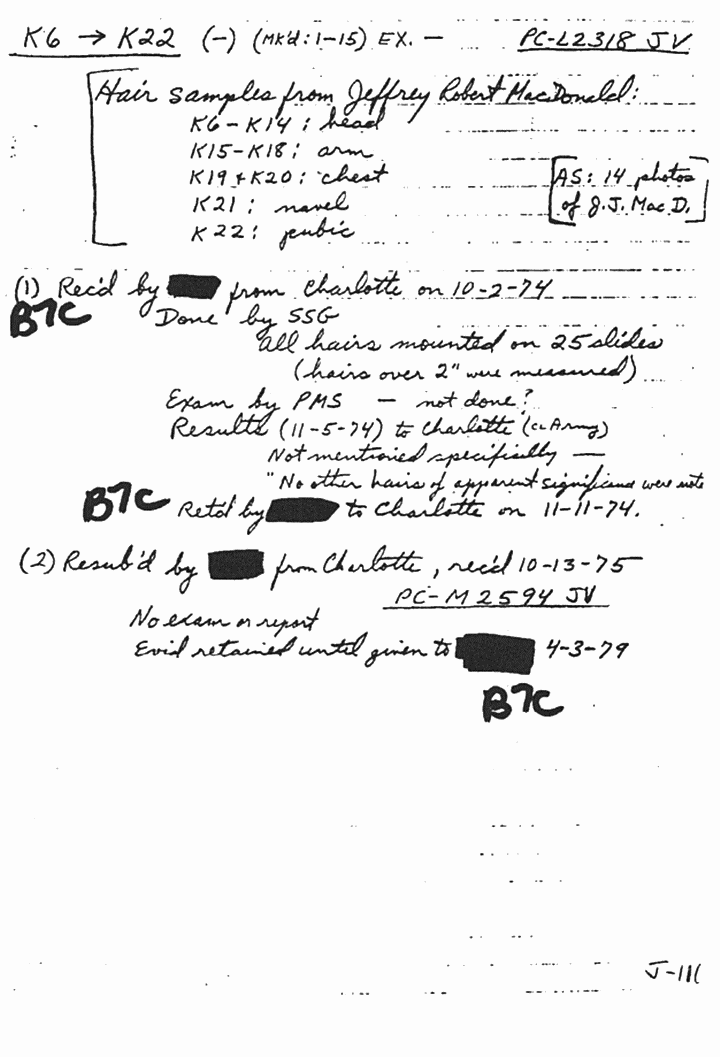 K6 → K22 (-) (MK'd: 1-15) EX. — PC-L2318 JV
Hair samples from Jeffrey Robert MacDonald:
K6-K14: head
K15-K18: arm
K19+K20: chest
AS: 14 photos
K21: navel
of J.J. Mac D.
K22: pubic
(1) Rec'd by from Charlotte on 10-2-74
B7C
Done by SSG
All hairs mounted on 25 slides
(hairs over 2" were measured)
Exam by PMS — not done?
Results (11-5-74) to Charlotte (cc Army)
Not mentioned specifically —
"No other hairs of apparent significance were note
B7C Ret'd by to Charlotte on 11-11-74.
(2) Resub'd by from Charlotte, rec'd 10-13-75
PC-M2594 JV
No exam or report
Evid retained until given to 4-3-79
B7C
J-11(